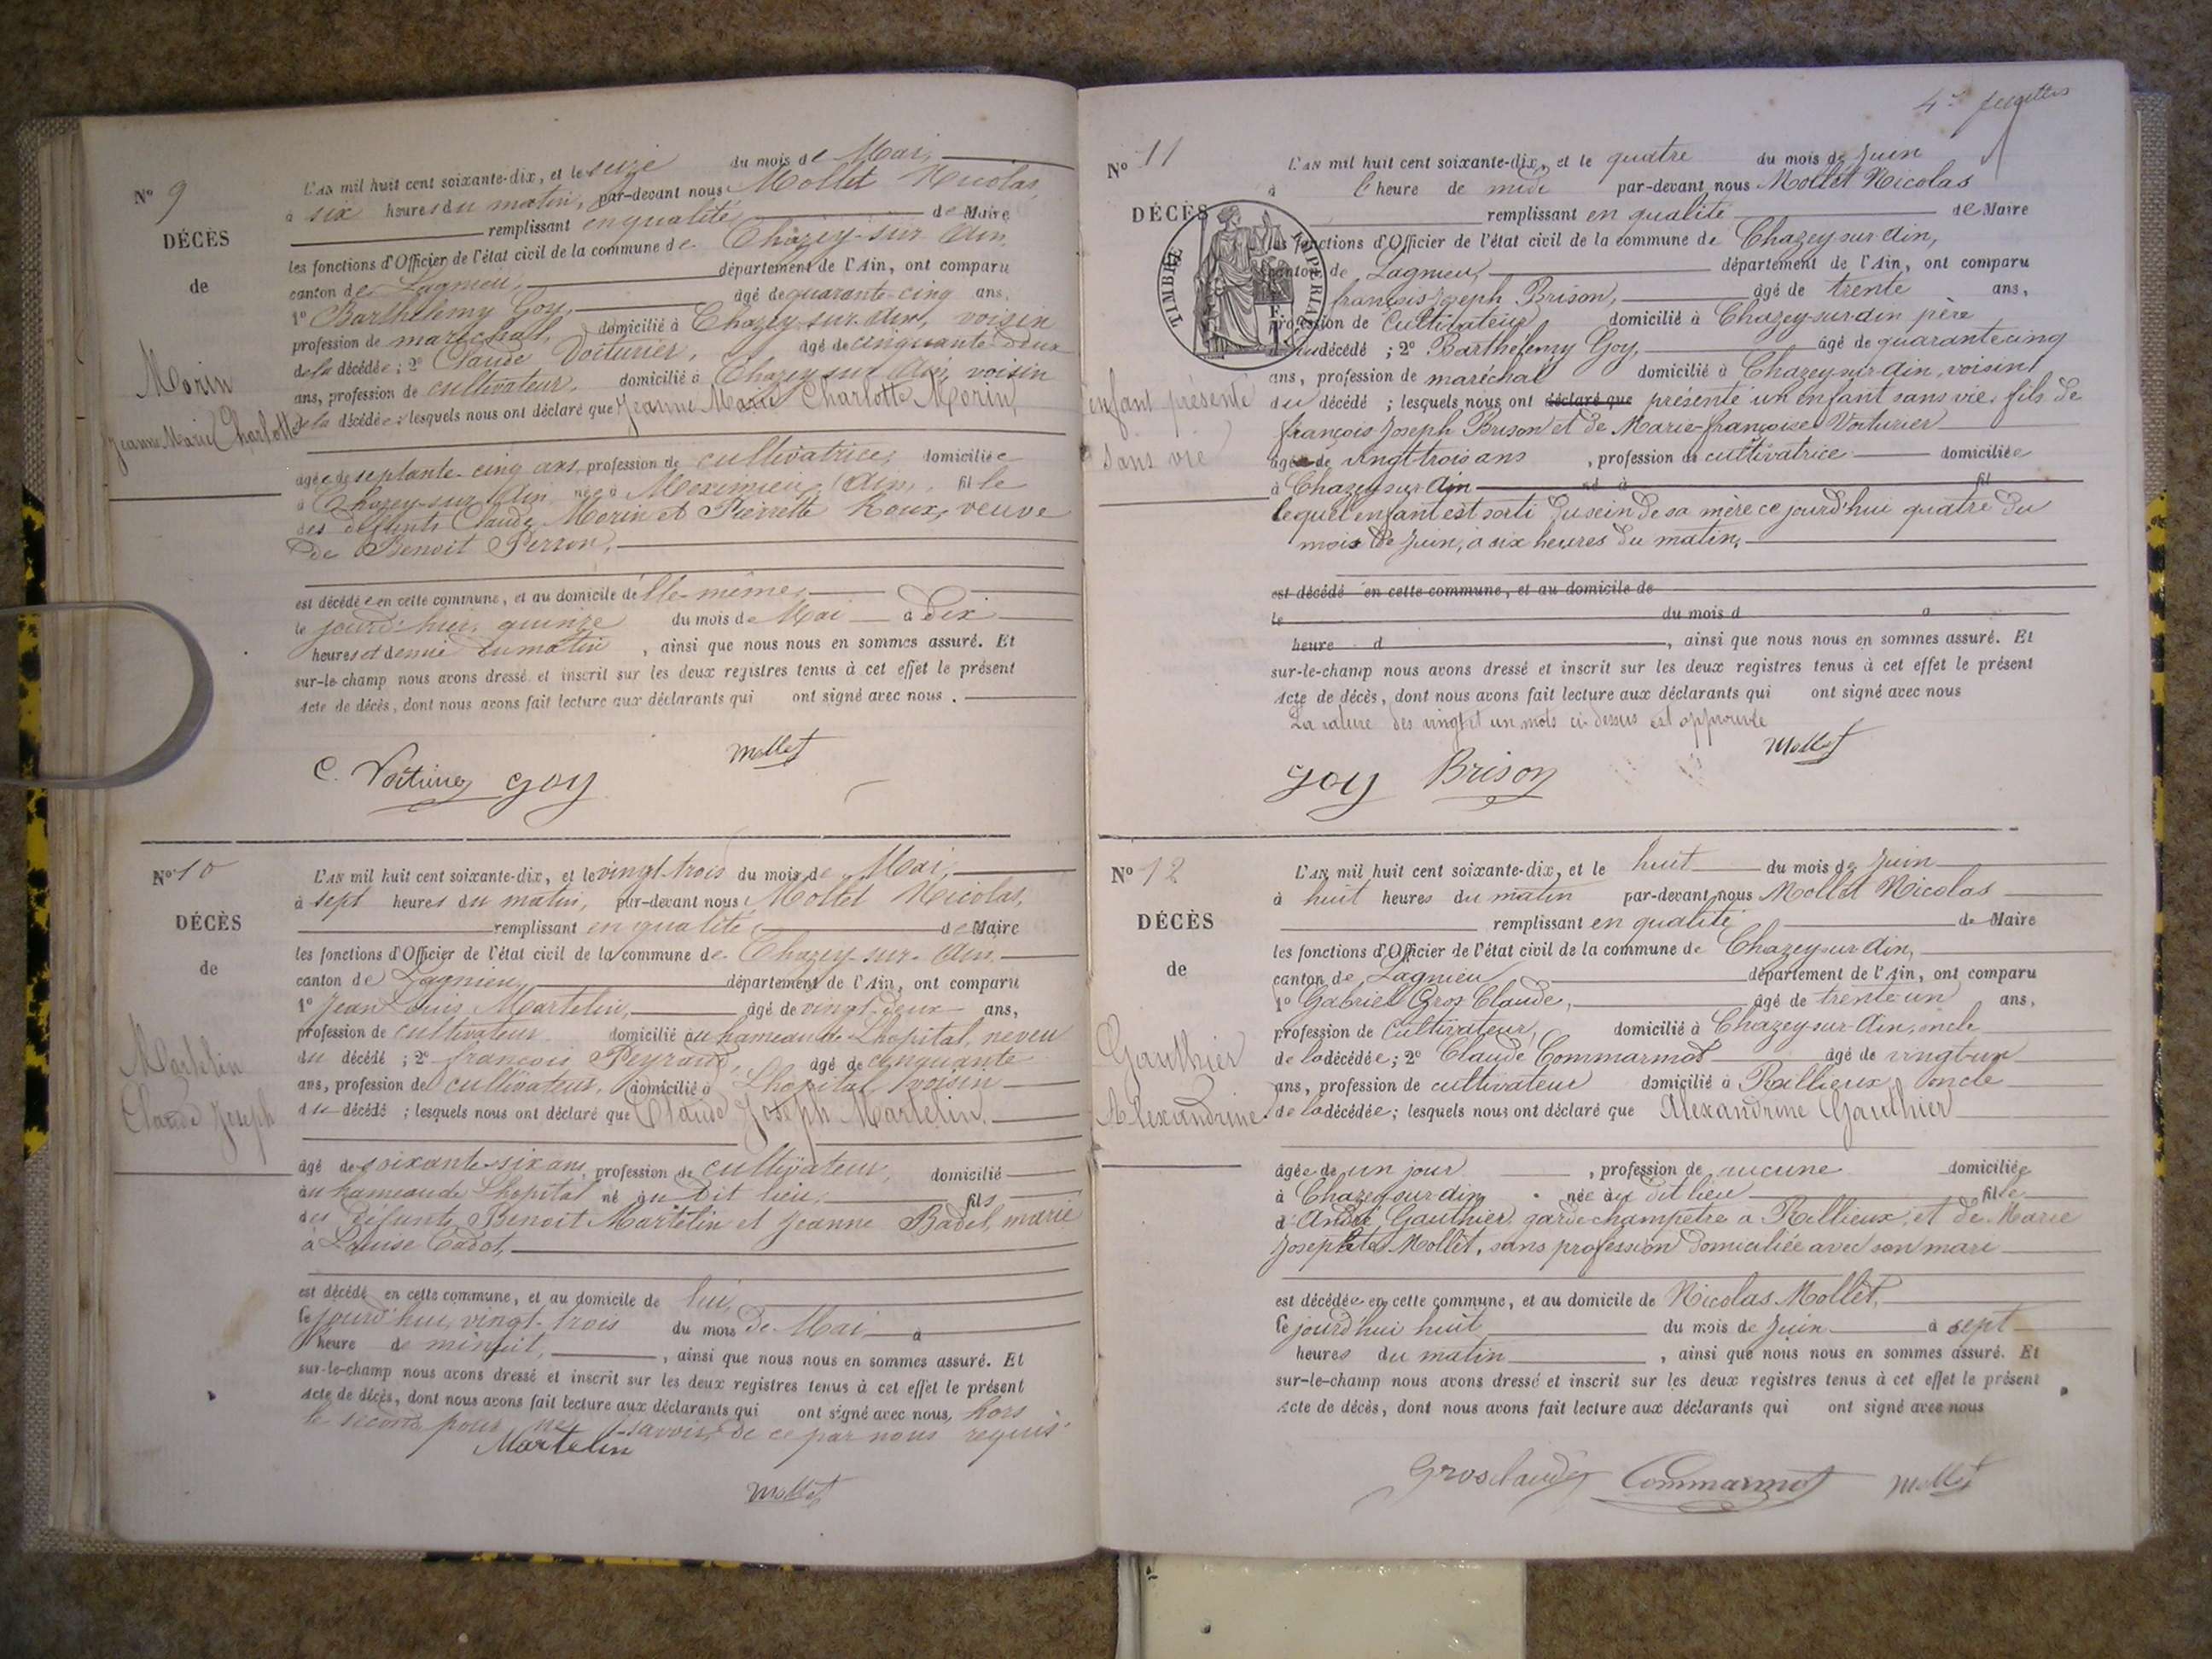 N° 9
DÉCÈS
de
Morin
Jeanne Marie Charlotte
L'AN mil huit cent soixante-dix, et le seize du mois de Mai,
à six heures du matin, par-devant nous Mollet Nicolas,
remplissant en qualité de Maire
les fonctions d'Officier de l'état civil de la commune de Chazey-sur-Ain,
canton de Lagnieu, département de l'Ain, ont comparu
1° Barthélemy Goy, âgé de quarante-cinq ans,
profession de maréchal, domicilié à Chazey-sur-Ain, voisin
de la décédée ; 2° Claude Voiturier, âgé de cinquante-deux
ans, profession de cultivateur, domicilié à Chazey sur Ain, voisin
de la décédée ; lesquels nous ont déclaré que Jeanne Marie Charlotte Morin,
âgée de septante-cinq ans, profession de cultivatrice, domiciliée
à Chazey-sur-Ain, née à Meximieux (Ain), fille
des deffunts Claude Morin et Pierrette Roux, veuve
de Benoit Perron,
est décédée en cette commune, et au domicile d'elle-même,
le jourd'hui, quinze du mois de Mai à dix
heures et demie du matin, ainsi que nous nous en sommes assuré. Et
sur-le-champ nous avons dressé et inscrit sur les deux registres tenus à cet effet le présent
Acte de décès, dont nous avons fait lecture aux déclarants qui ont signé avec nous.
Mollet
C. Voiturier Goy
N° 10
DÉCÈS
de
Martelin
Claude Joseph
L'AN mil huit cent soixante-dix, et le vingt-trois du mois de Mai,
à sept heures du matin, par-devant nous Mollet Nicolas,
remplissant en qualité de Maire
les fonctions d'Officier de l'état civil de la commune de Chazey-sur-Ain,
canton de Lagnieu, département de l'Ain, ont comparu
1° Jean Louis Martelin, âgé de vingt-deux ans,
profession de cultivateur domicilié au hameau de Lhopital, neveu
du décédé ; 2° françois Peyraud, âgé de cinquante
ans, profession de cultivateur, domicilié à Lhopital voisin
du décédé ; lesquels nous ont déclaré que Claude Joseph Martelin,
âgé de soixante-six ans, profession de cultivateur, domicilié
au hameau de Lhopital né au dit lieu, fils
des défunts Benoit Martelin et Jeanne Badel, marié
à Louise Cadot,
est décédé en cette commune, et au domicile de lui,
le jourd'hui, vingt-trois du mois de Mai à
l'heure de minuit, ainsi que nous nous en sommes assuré. Et
sur-le-champ nous avons dressé et inscrit sur les deux registres tenus à cet effet le présent
Acte de décès, dont nous avons fait lecture aux déclarants qui ont signé avec nous, hors
le second pour ne savoir de ce par nous requis
Martelin
Mollet
N° 11
DÉCÈS
TIMBRE IMPÉRIAL
enfant présenté
sans vie
L'AN mil huit cent soixante-dix, et le quatre du mois de Juin
à l'heure de midi par-devant nous Mollet Nicolas
remplissant en qualité de Maire
les fonctions d'Officier de l'état civil de la commune de Chazey sur Ain,
canton de Lagnieu, département de l'Ain, ont comparu
françois Joseph Brison, âgé de trente ans,
profession de Cultivateur domicilié à Chazey-sur-Ain père
du décédé ; 2° Barthelemy Goy, âgé de quarante cinq
ans, profession de maréchal domicilié à Chazey-sur-Ain, voisin
du décédé ; lesquels nous ont déclaré que présenté un enfant sans vie, fils de
françois Joseph Brison et de Marie-françoise Voiturier
âgée de vingt trois ans, profession de cultivatrice domiciliée
à Chazey sur Ain né à fil
lequel enfant est sorti du sein de sa mère ce jourd'hui quatre du
mois de Juin, à six heures du matin,
est décédé en cette commune, et au domicile de
le du mois d à
heure d, ainsi que nous nous en sommes assuré. Et
sur-le-champ nous avons dressé et inscrit sur les deux registres tenus à cet effet le présent
Acte de décès, dont nous avons fait lecture aux déclarants qui ont signé avec nous
La rature des vingt et un mots ci-dessus est approuvée
Mollet
Goy Brison
N° 12
DÉCÈS
de
Gauthier
Alexandrine
L'AN mil huit cent soixante-dix, et le huit du mois de Juin
à huit heures du matin par-devant nous Mollet Nicolas
remplissant en qualité de Maire
les fonctions d'Officier de l'état civil de la commune de Chazey sur Ain,
canton de Lagnieu département de l'Ain, ont comparu
1° Gabriel Gros Claude, âgé de trente un ans,
profession de Cultivateur, domicilié à Chazey-sur-Ain, oncle
de la décédée ; 2° Claude Commarmot âgé de vingt-un
ans, profession de cultivateur domicilié à Rillieux oncle
de la décédée ; lesquels nous ont déclaré que Alexandrine Gauthier
âgée de un jour, profession de aucune domiciliée
à Chazey-sur-Ain née au dit lieu fille
d'André Gauthier, garde champêtre à Rillieux, et de Marie
Josephte Mollet, sans profession domiciliée avec son mari
est décédée en cette commune, et au domicile de Nicolas Mollet,
le jourd'hui huit du mois de Juin à sept
heures du matin, ainsi que nous nous en sommes assuré. Et
sur-le-champ nous avons dressé et inscrit sur les deux registres tenus à cet effet le présent
Acte de décès, dont nous avons fait lecture aux déclarants qui ont signé avec nous
Grosclaude Commarmot Mollet